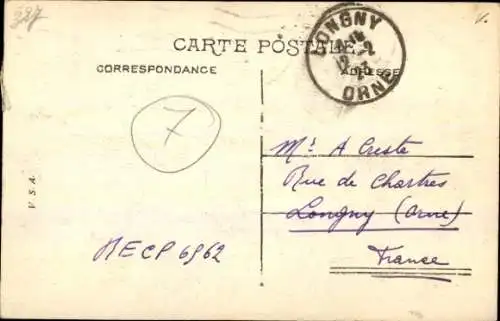 327
V.
CARTE POSTALE
CORRESPONDANCE
ADRESSE
LONGNY
ORNE
7
Mr. A Creste
Rue de Chartres
Longny (Orne)
France
RECP 6962
V S A.